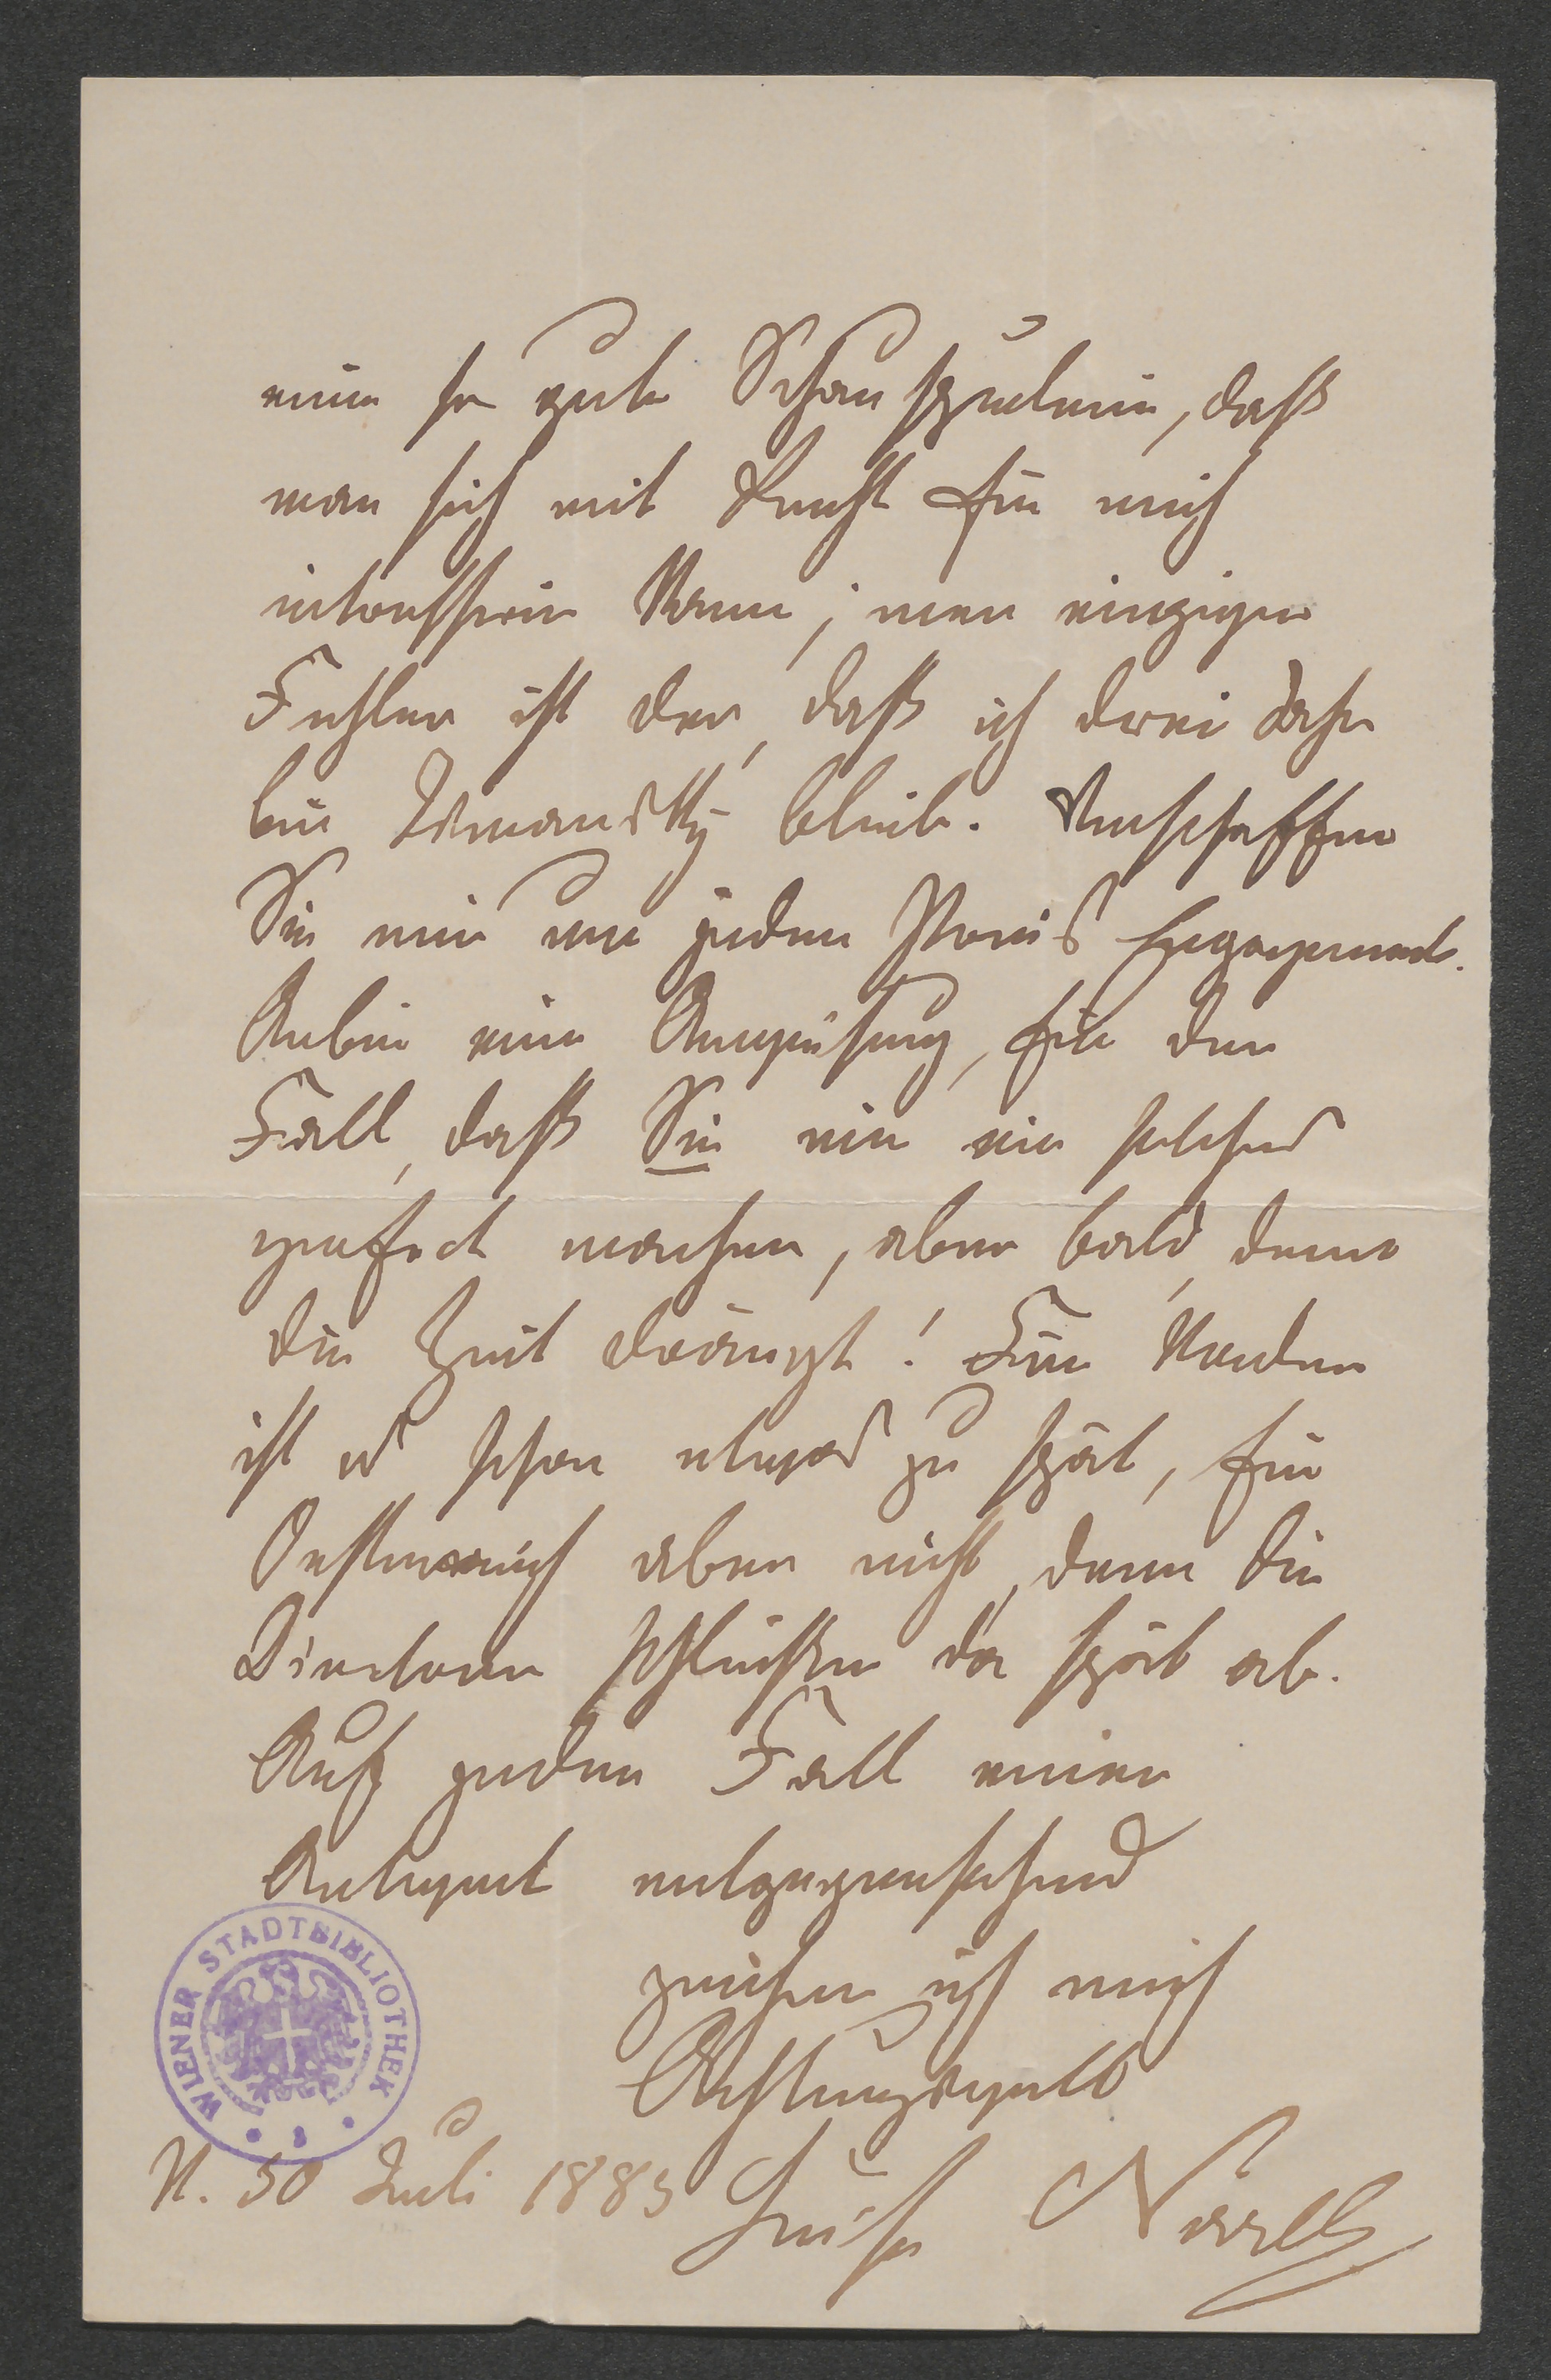 eine so gute Schauspielerin, daß
man sich mit Recht für mich
interessiren kann; mein einziger
Fehler ist der, daß ich drei Jahre
bei blieb. Verschaffen
Sie mir um jeden Preis Engagement.
Anbei eine Anweisung, für den
Fall, daß Sie mir ein solches
perfect machen, aber bald, denn
die Zeit drängt! Für Norden
ist es schon etwas zu spät, für
Oesterreich aber nicht, denn die
Directoren schließen da spät ab.
Auf jeden Fall einer
Antwort entgegensehend
zeichne ich mich
Achtungsvoll
Luise
30 Juli 1885
WIENER STADTBIBLIOTHEK